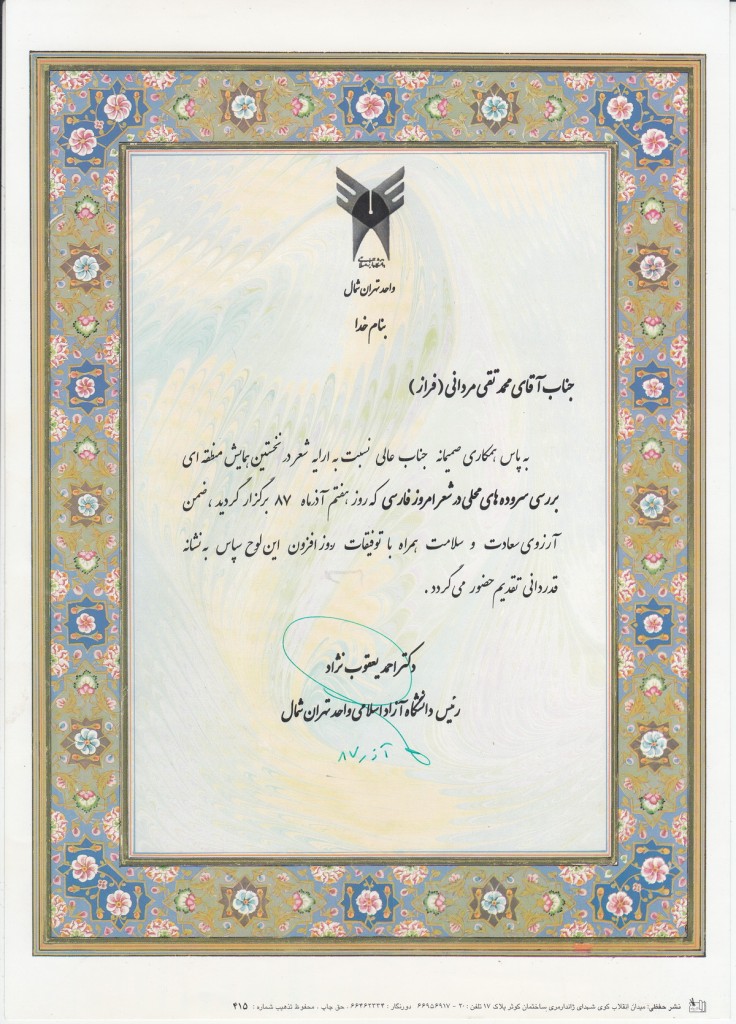 واحد تهران شمال
بنام خدا
جناب آقای محمد تقی مردانی (فراز)
به پاس همکاری صمیمانه جناب عالی نسبت به ارایه شعر در نخستین همایش منطقه ای
بررسی سروده های محلی در شعر امروز فارسی که روز هفتم آذرماه ۸۷ برگزار گردید، ضمن
آرزوی سعادت و سلامت همراه با توفیقات روز افزون این لوح سپاس به نشانه
قدردانی تقدیم حضور می گردد.
دکتر احمد یعقوب نژاد
رئیس دانشگاه آزاد اسلامی واحد تهران شمال
آذر ۸۷
نشر حفظی: میدان انقلاب کوی شهدای ژاندارمری ساختمان کوثر پلاک ۱۷ تلفن: ۲۰ - ۶۶۹۵۶۹۱۷ دورنگار: ۶۶۴۶۲۳۳۴ - حق چاپ، محفوظ تذهیب شماره: ۴۱۵